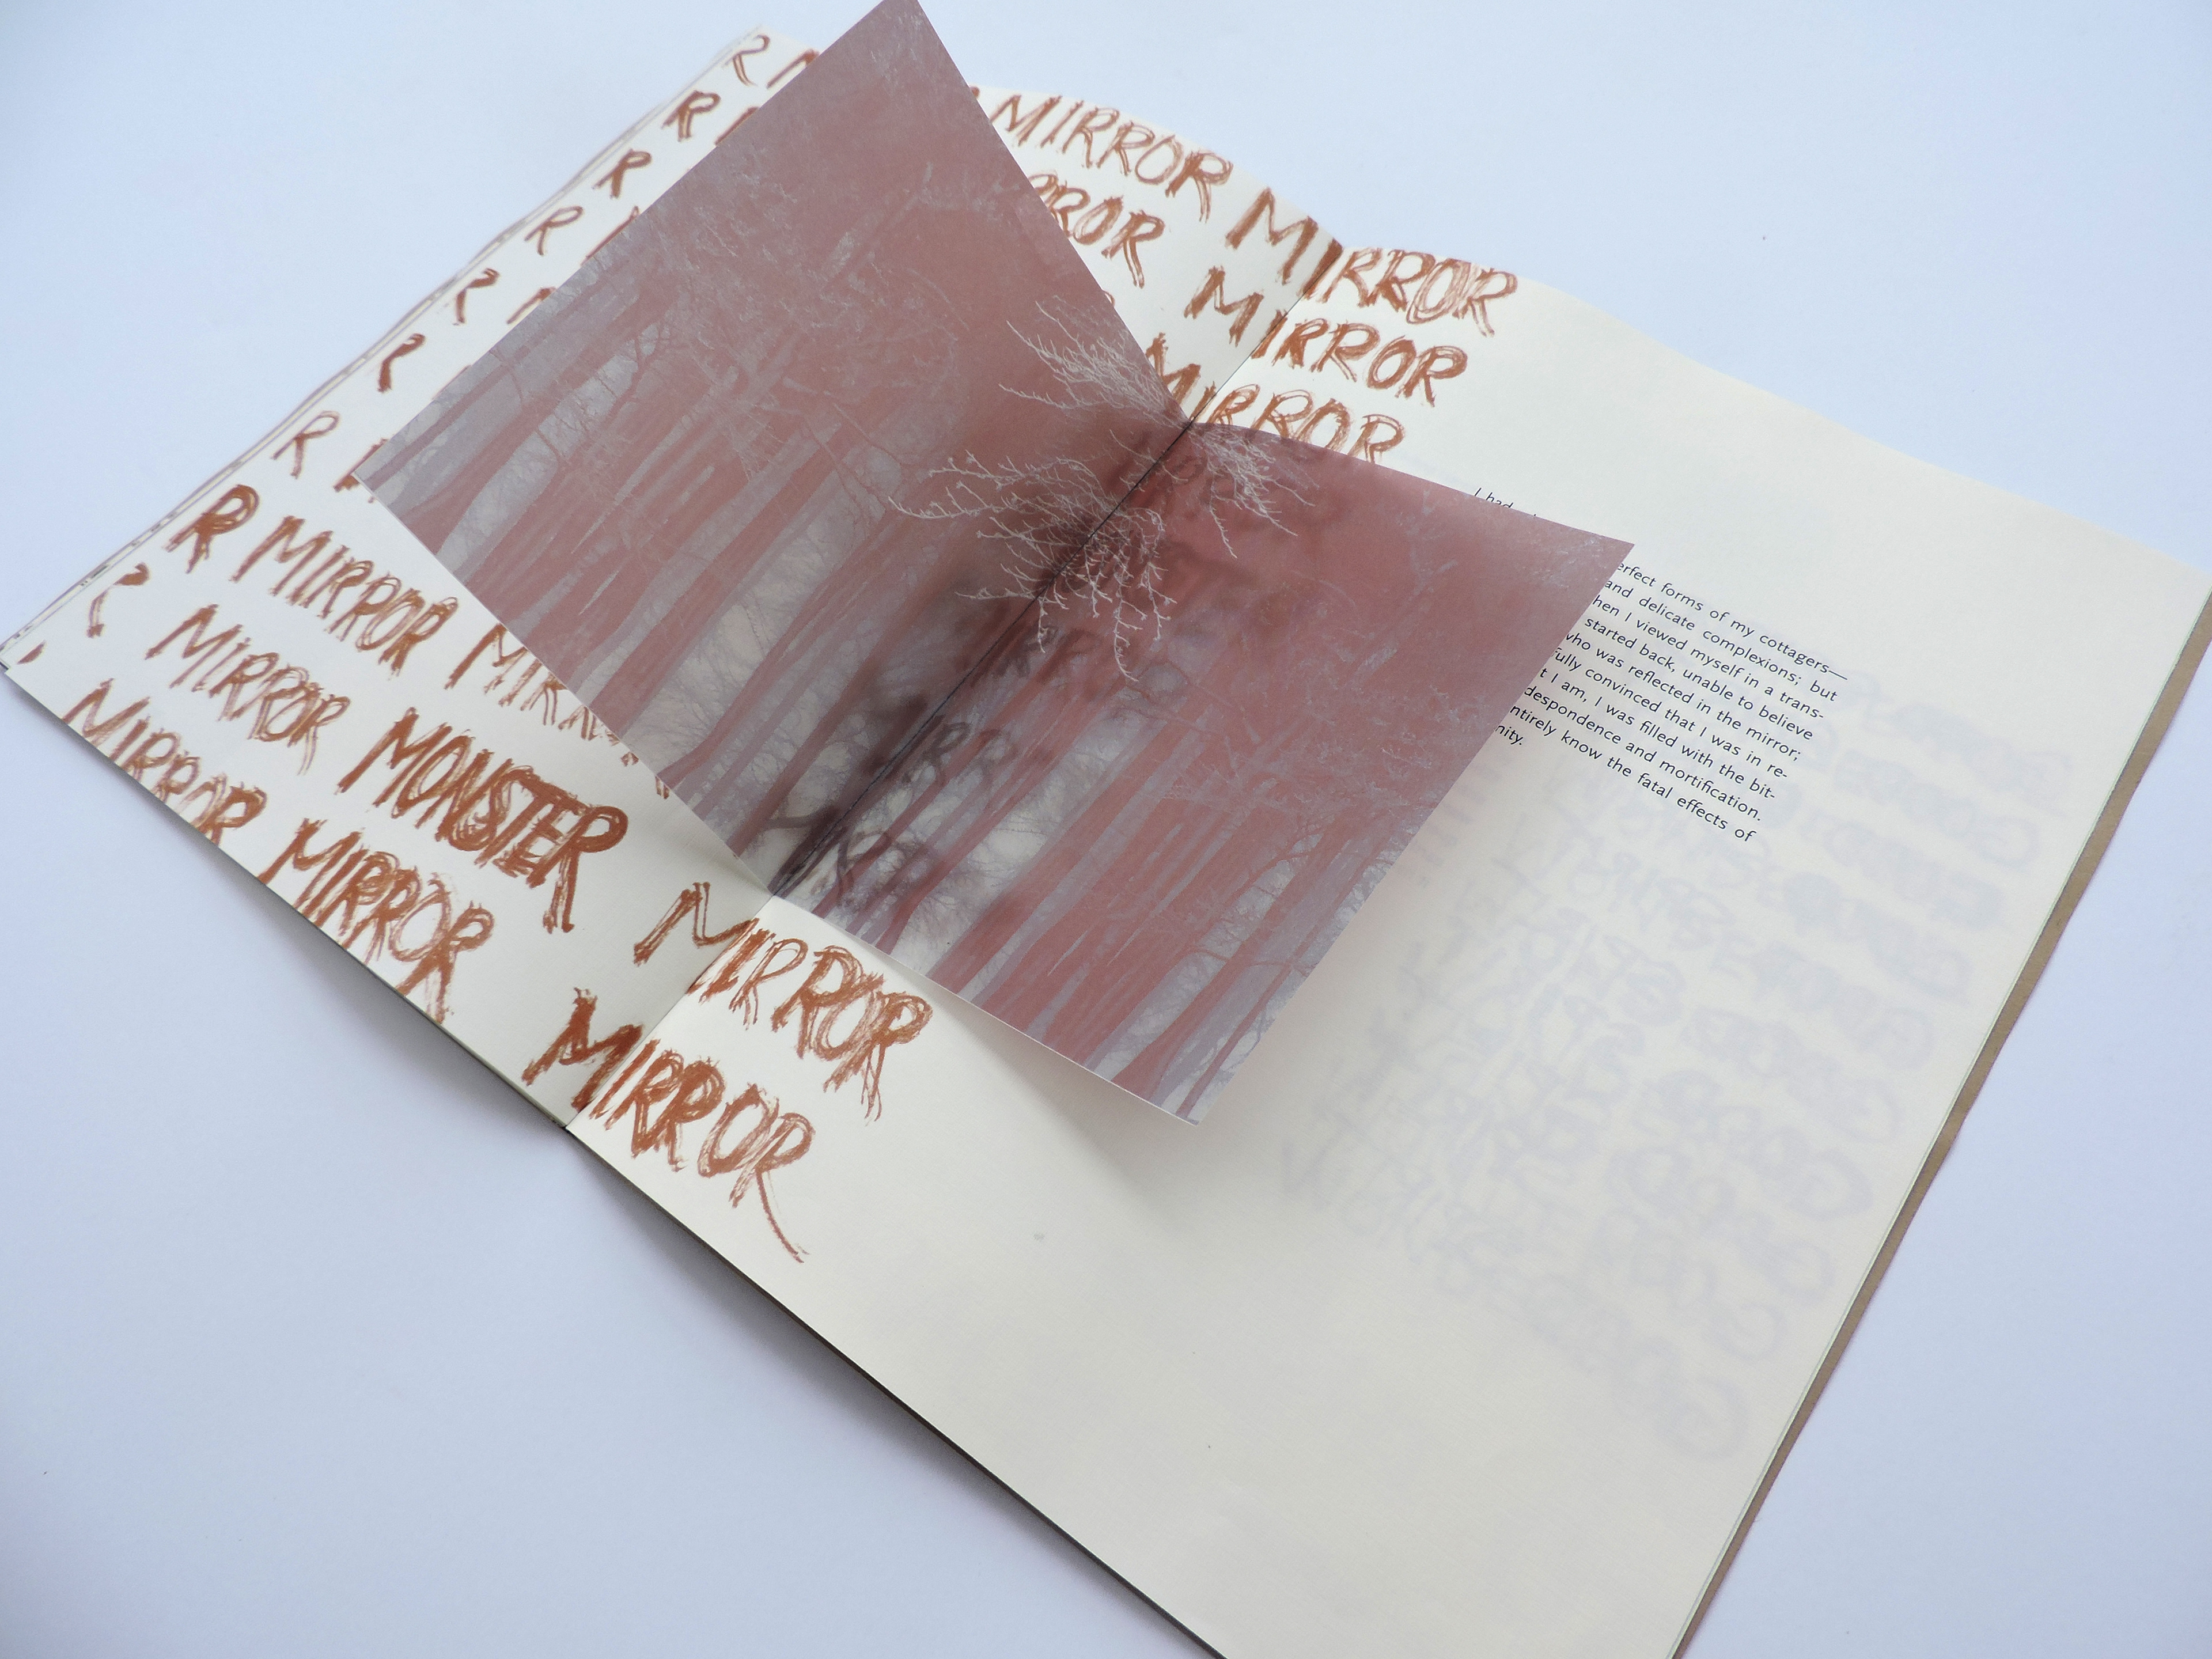 R
R MIRROR MIRROR
R ROR MIRROR
R MIRROR
R
R
R
R MIRROR
MIRROR MONSTER MIRROR
MIRROR MIRROR MIRROR
I had
erfect forms of my cottagers—
and delicate complexions; but
hen I viewed myself in a trans-
started back, unable to believe
who was reflected in the mirror;
fully convinced that I was in re-
t I am, I was filled with the bit-
despondence and mortification.
ntirely know the fatal effects of
nity.